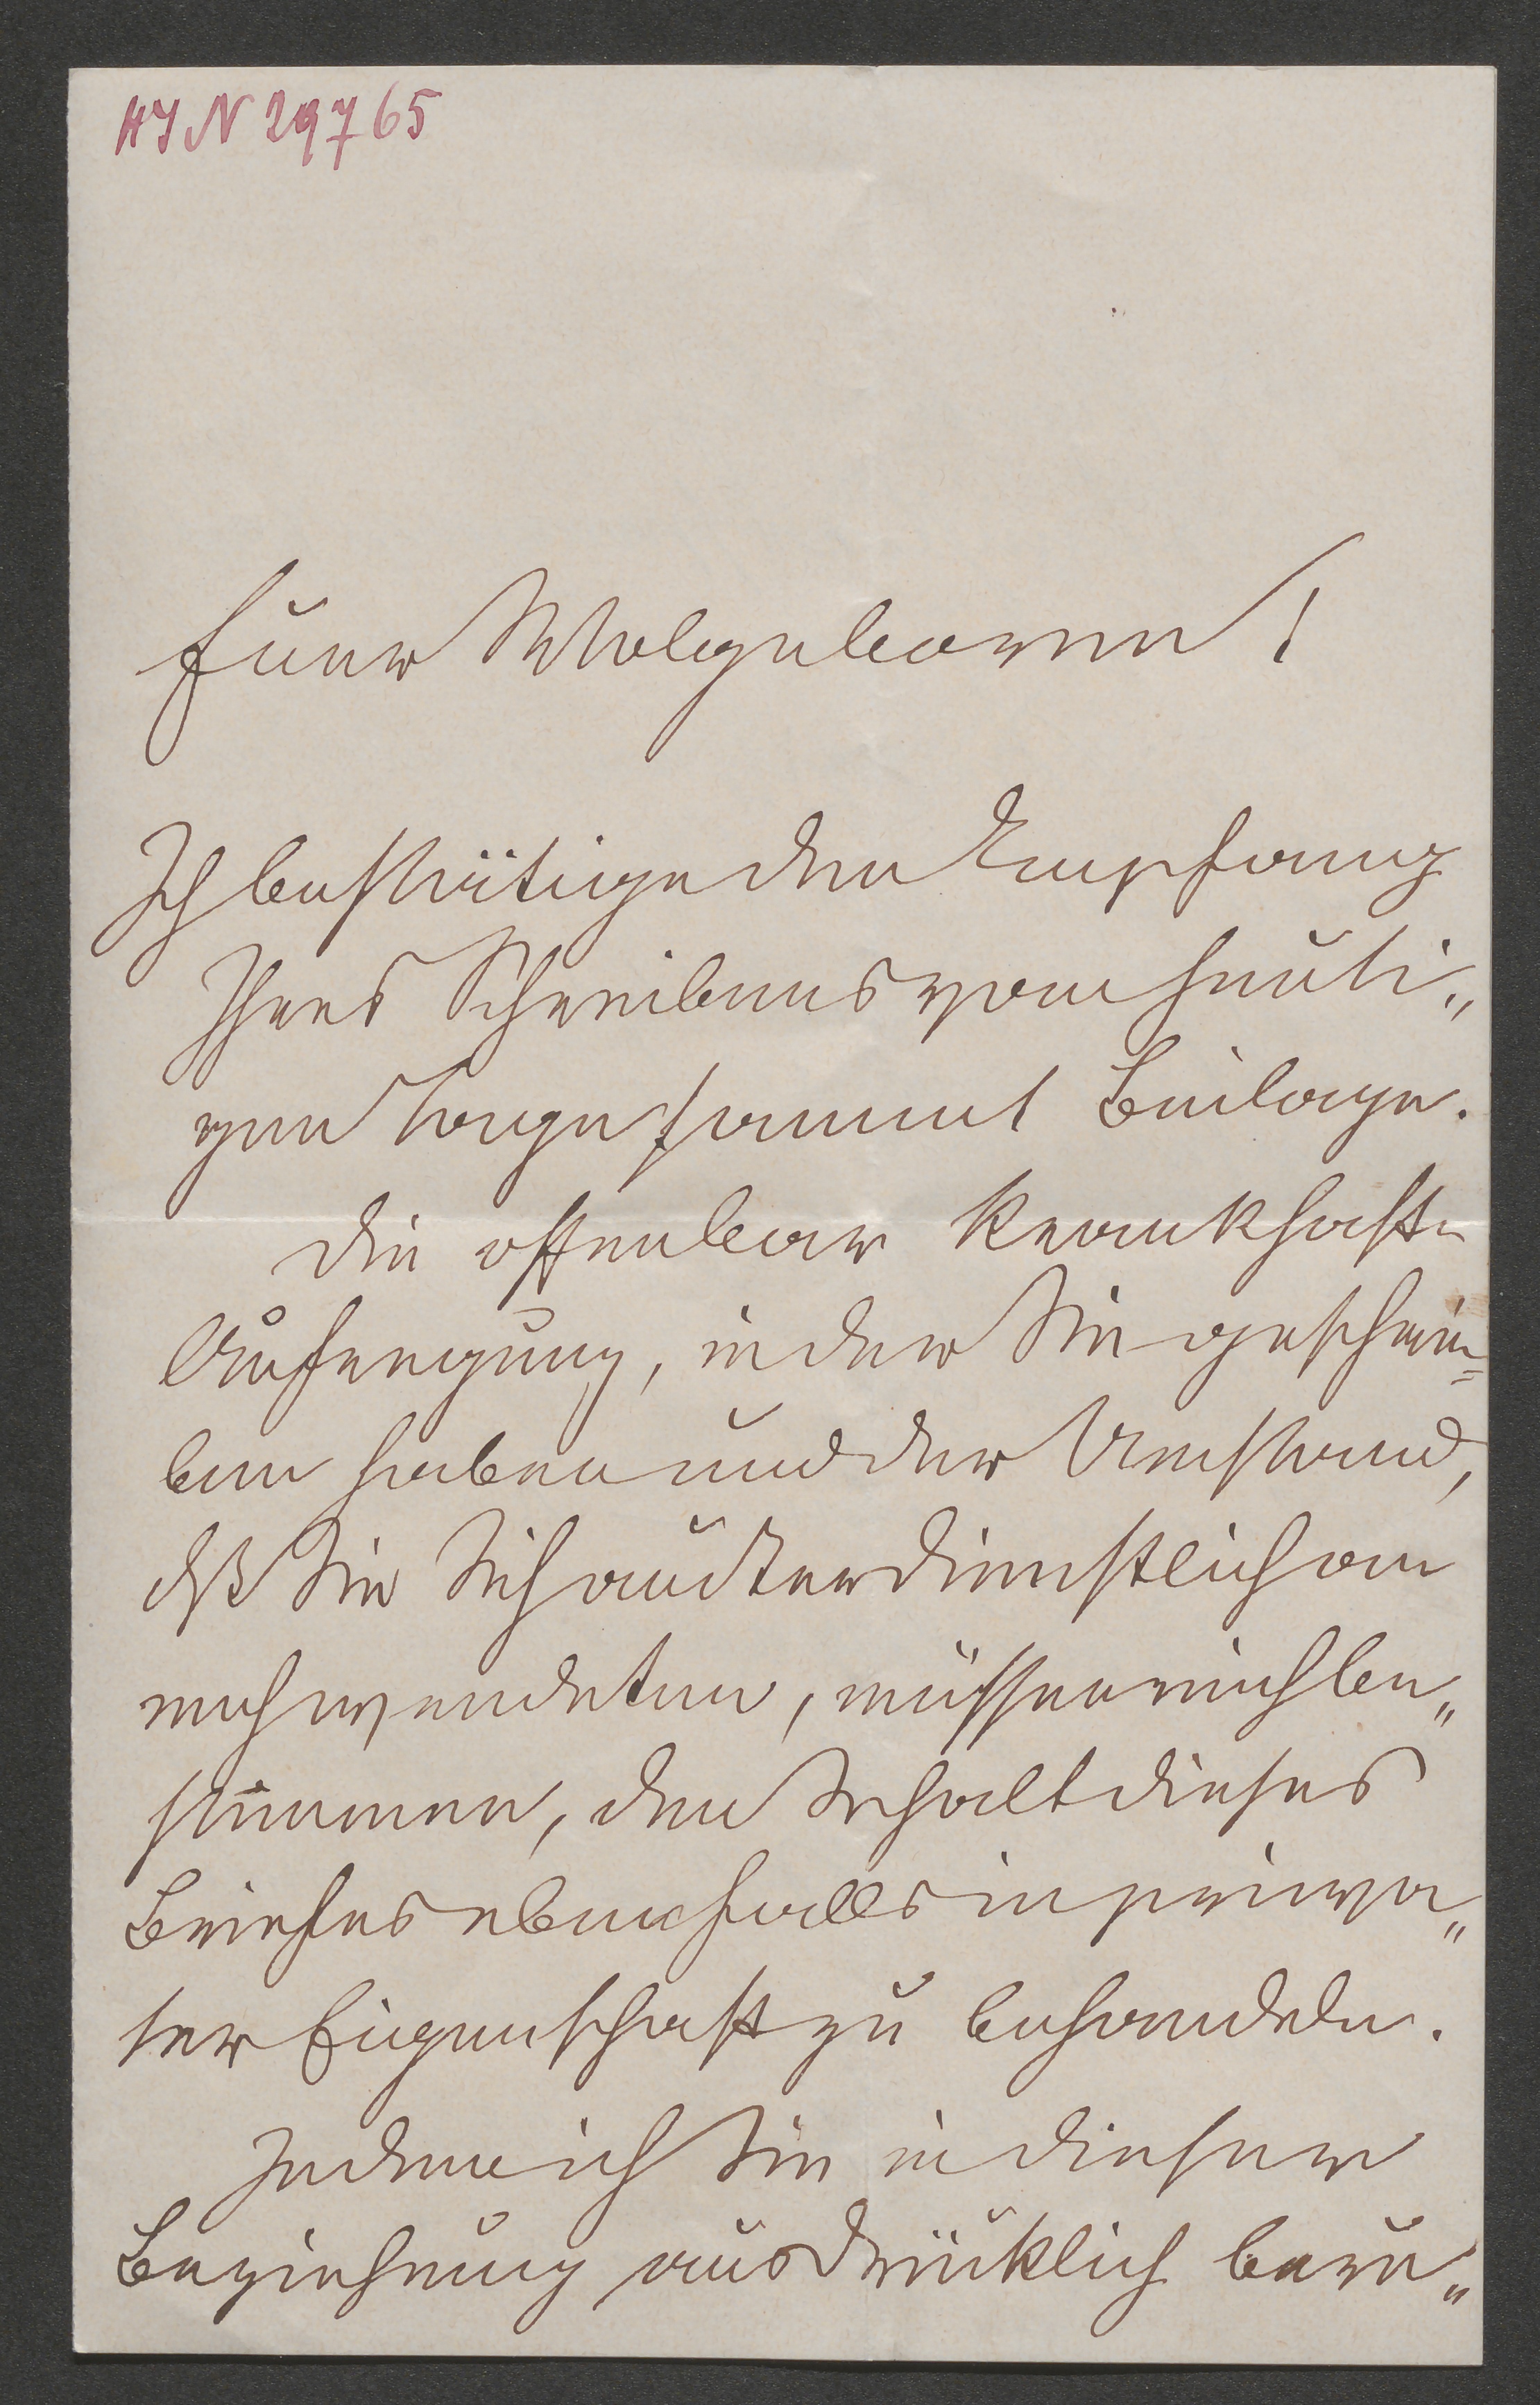 HJN 29765
Euer Wohlgeboren!
Ich bestätige den Empfang
Ihres Schreibens vom heuti„
gen Tage sammt Beilage.
Die offenbar krankhafte
Aufregung, in der Sie geschrie=
ben haben und der Umstand,
dß Sie Sich außerdienstlich an
mich wendeten, müssen mich be„
stimmen, den Inhalt dieses
Briefes ebenfalls in priva„
ter Eigenschaft zu behandeln.
Indem ich Sie in dieser
Beziehung ausdrücklich beru„